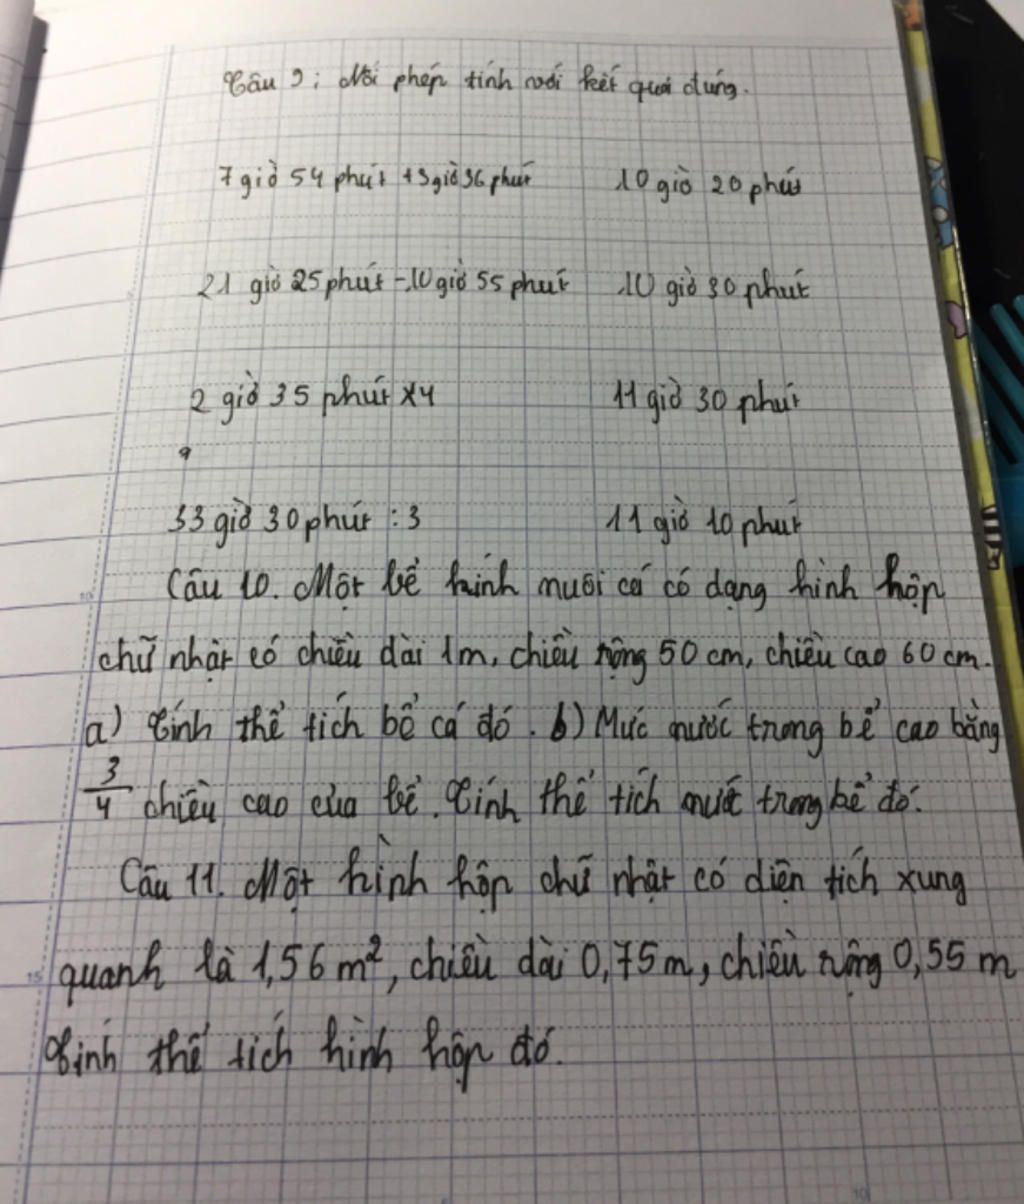 Câu 9: Nối phép tính với kết quả đúng.
7 giờ 54 phút + 3 giờ 36 phút 10 giờ 20 phút
21 giờ 25 phút - 10 giờ 55 phút 10 giờ 30 phút
2 giờ 35 phút x 4 11 giờ 30 phút
33 giờ 30 phút : 3 11 giờ 10 phút
Câu 10. Một bể hình nuôi cá có dạng hình hộp
chữ nhật có chiều dài 1m, chiều rộng 50 cm, chiều cao 60 cm.
a) Tính thể tích bể cá đó. b) Mức nước trong bể cao bằng
3/4 chiều cao của bể. Tính thể tích nước trong bể đó.
Câu 11. Một hình hộp chữ nhật có diện tích xung
quanh là 1,56 m², chiều dài 0,75 m, chiều rộng 0,55 m
Tính thể tích hình hộp đó.